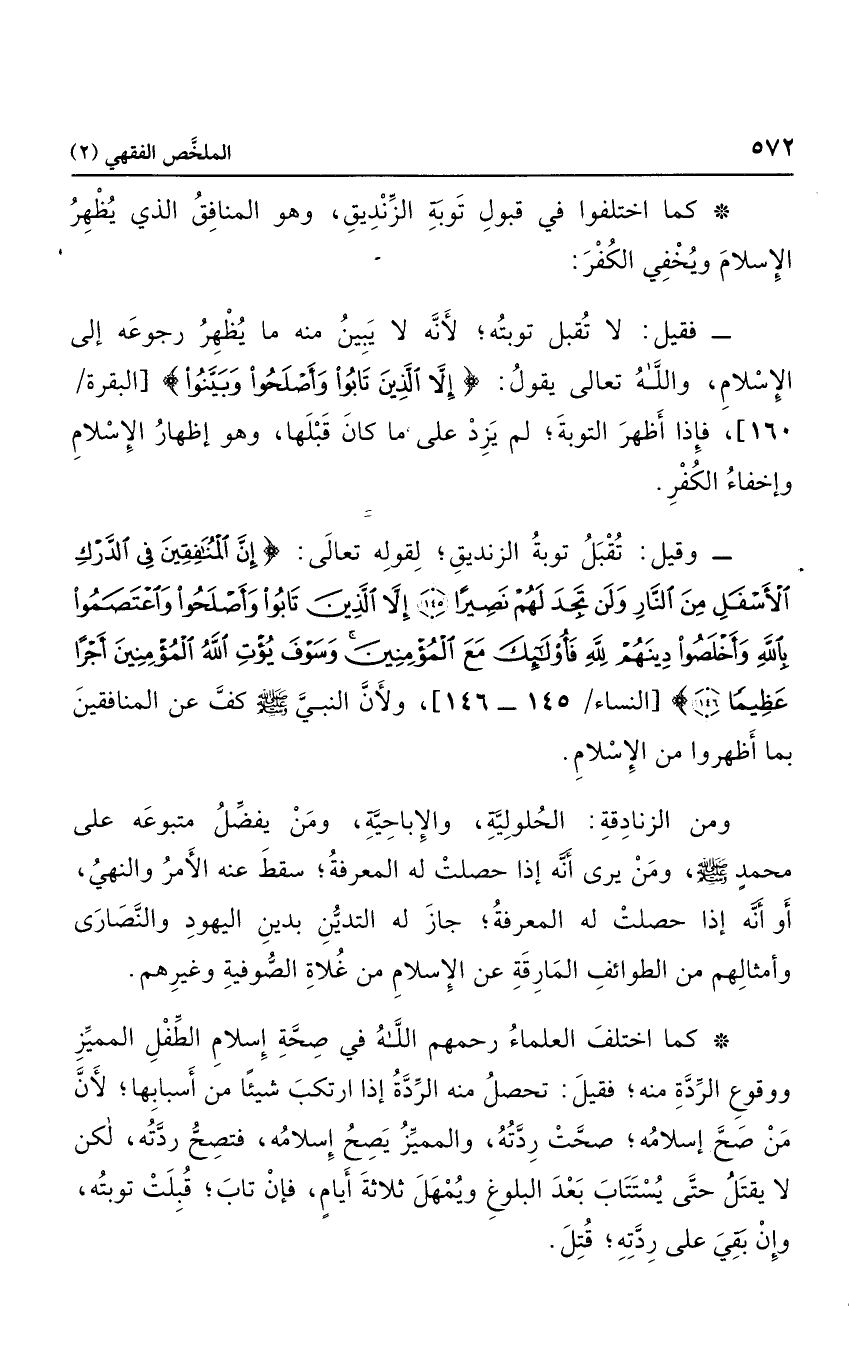 ٥٧٢ الملخَّص الفقهي (٢)
* كما اختلفوا في قبولِ تَوبَةِ الزِّنْدِيقِ، وهو المنافِقُ الذي يُظْهِرُ
الإِسلامَ ويُخْفِي الكُفْرَ:
ــ فقيل: لا تُقبل توبتُه؛ لأَنَّه لا يَبِينُ منه ما يُظْهِرُ رجوعَه إلى
الإِسْلامِ، واللَّهُ تعالى يقولُ: ﴿ إِلَّا ٱلَّذِينَ تَابُوا۟ وَأَصْلَحُوا۟ وَبَيَّنُوا۟ ﴾ [البقرة/
١٦٠]، فإِذا أَظهرَ التوبةَ؛ لم يَزِدْ على ما كانَ قَبْلَها، وهو إظهارُ الإِسْلامِ
وإخفاءُ الكُفْرِ.
ــ وقيل: تُقْبَلُ توبةُ الزنديقِ؛ لِقولِه تعالَى: ﴿ إِنَّ ٱلْمُنَٰفِقِينَ فِى ٱلدَّرْكِ
ٱلْأَسْفَلِ مِنَ ٱلنَّارِ وَلَن تَجِدَ لَهُمْ نَصِيرًا ١٤٥ إِلَّا ٱلَّذِينَ تَابُوا۟ وَأَصْلَحُوا۟ وَٱعْتَصَمُوا۟
بِٱللَّهِ وَأَخْلَصُوا۟ دِينَهُمْ لِلَّهِ فَأُو۟لَٰٓئِكَ مَعَ ٱلْمُؤْمِنِينَ ۖ وَسَوْفَ يُؤْتِ ٱللَّهُ ٱلْمُؤْمِنِينَ أَجْرًا
عَظِيمًا ١٤٦ ﴾ [النساء/ ١٤٥ ــ ١٤٦]، ولأَنَّ النبيَّ ﷺ كفَّ عن المنافقينَ
بما أَظهروا من الإِسْلامِ.
ومن الزنادِقةِ: الحُلوليَّةِ، والإِباحيَّةِ، ومَنْ يفضِّلُ متبوعَه على
محمدٍ ﷺ، ومَنْ يرى أَنَّه إذا حصلتْ له المعرفةُ؛ سقطَ عنه الأَمرُ والنهيُ،
أو أَنَّه إذا حصلتْ له المعرفةُ؛ جازَ له التديُّن بدينِ اليهودِ والنَّصَارَى
وأمثالِهم من الطوائفِ المَارِقَةِ عن الإِسلامِ من غُلاةِ الصُّوفيةِ وغيرِهم.
* كما اختلفَ العلماءُ رحمهم اللَّهُ في صِحَّةِ إِسلامِ الطِّفْلِ المميِّزِ
ووقوعِ الرِّدَّةِ منه؛ فقيلَ: تحصلُ منه الرِّدَّةُ إذا ارتكبَ شيئًا من أَسبابِها؛ لأَنَّ
مَنْ صَحَّ إسلامُه؛ صحَّتْ رِدَّتُهُ، والمميِّزُ يَصِحُ إِسلامُه، فتصِحُّ ردَّتُه، لٰكن
لا يقتَلُ حتَّى يُسْتَتَابَ بَعْدَ البلوغِ ويُمْهَلَ ثلاثةَ أَيامٍ، فإنْ تابَ؛ قُبِلَتْ توبتُه،
وإِنْ بَقِيَ على رِدَّتِهِ؛ قُتِلَ.